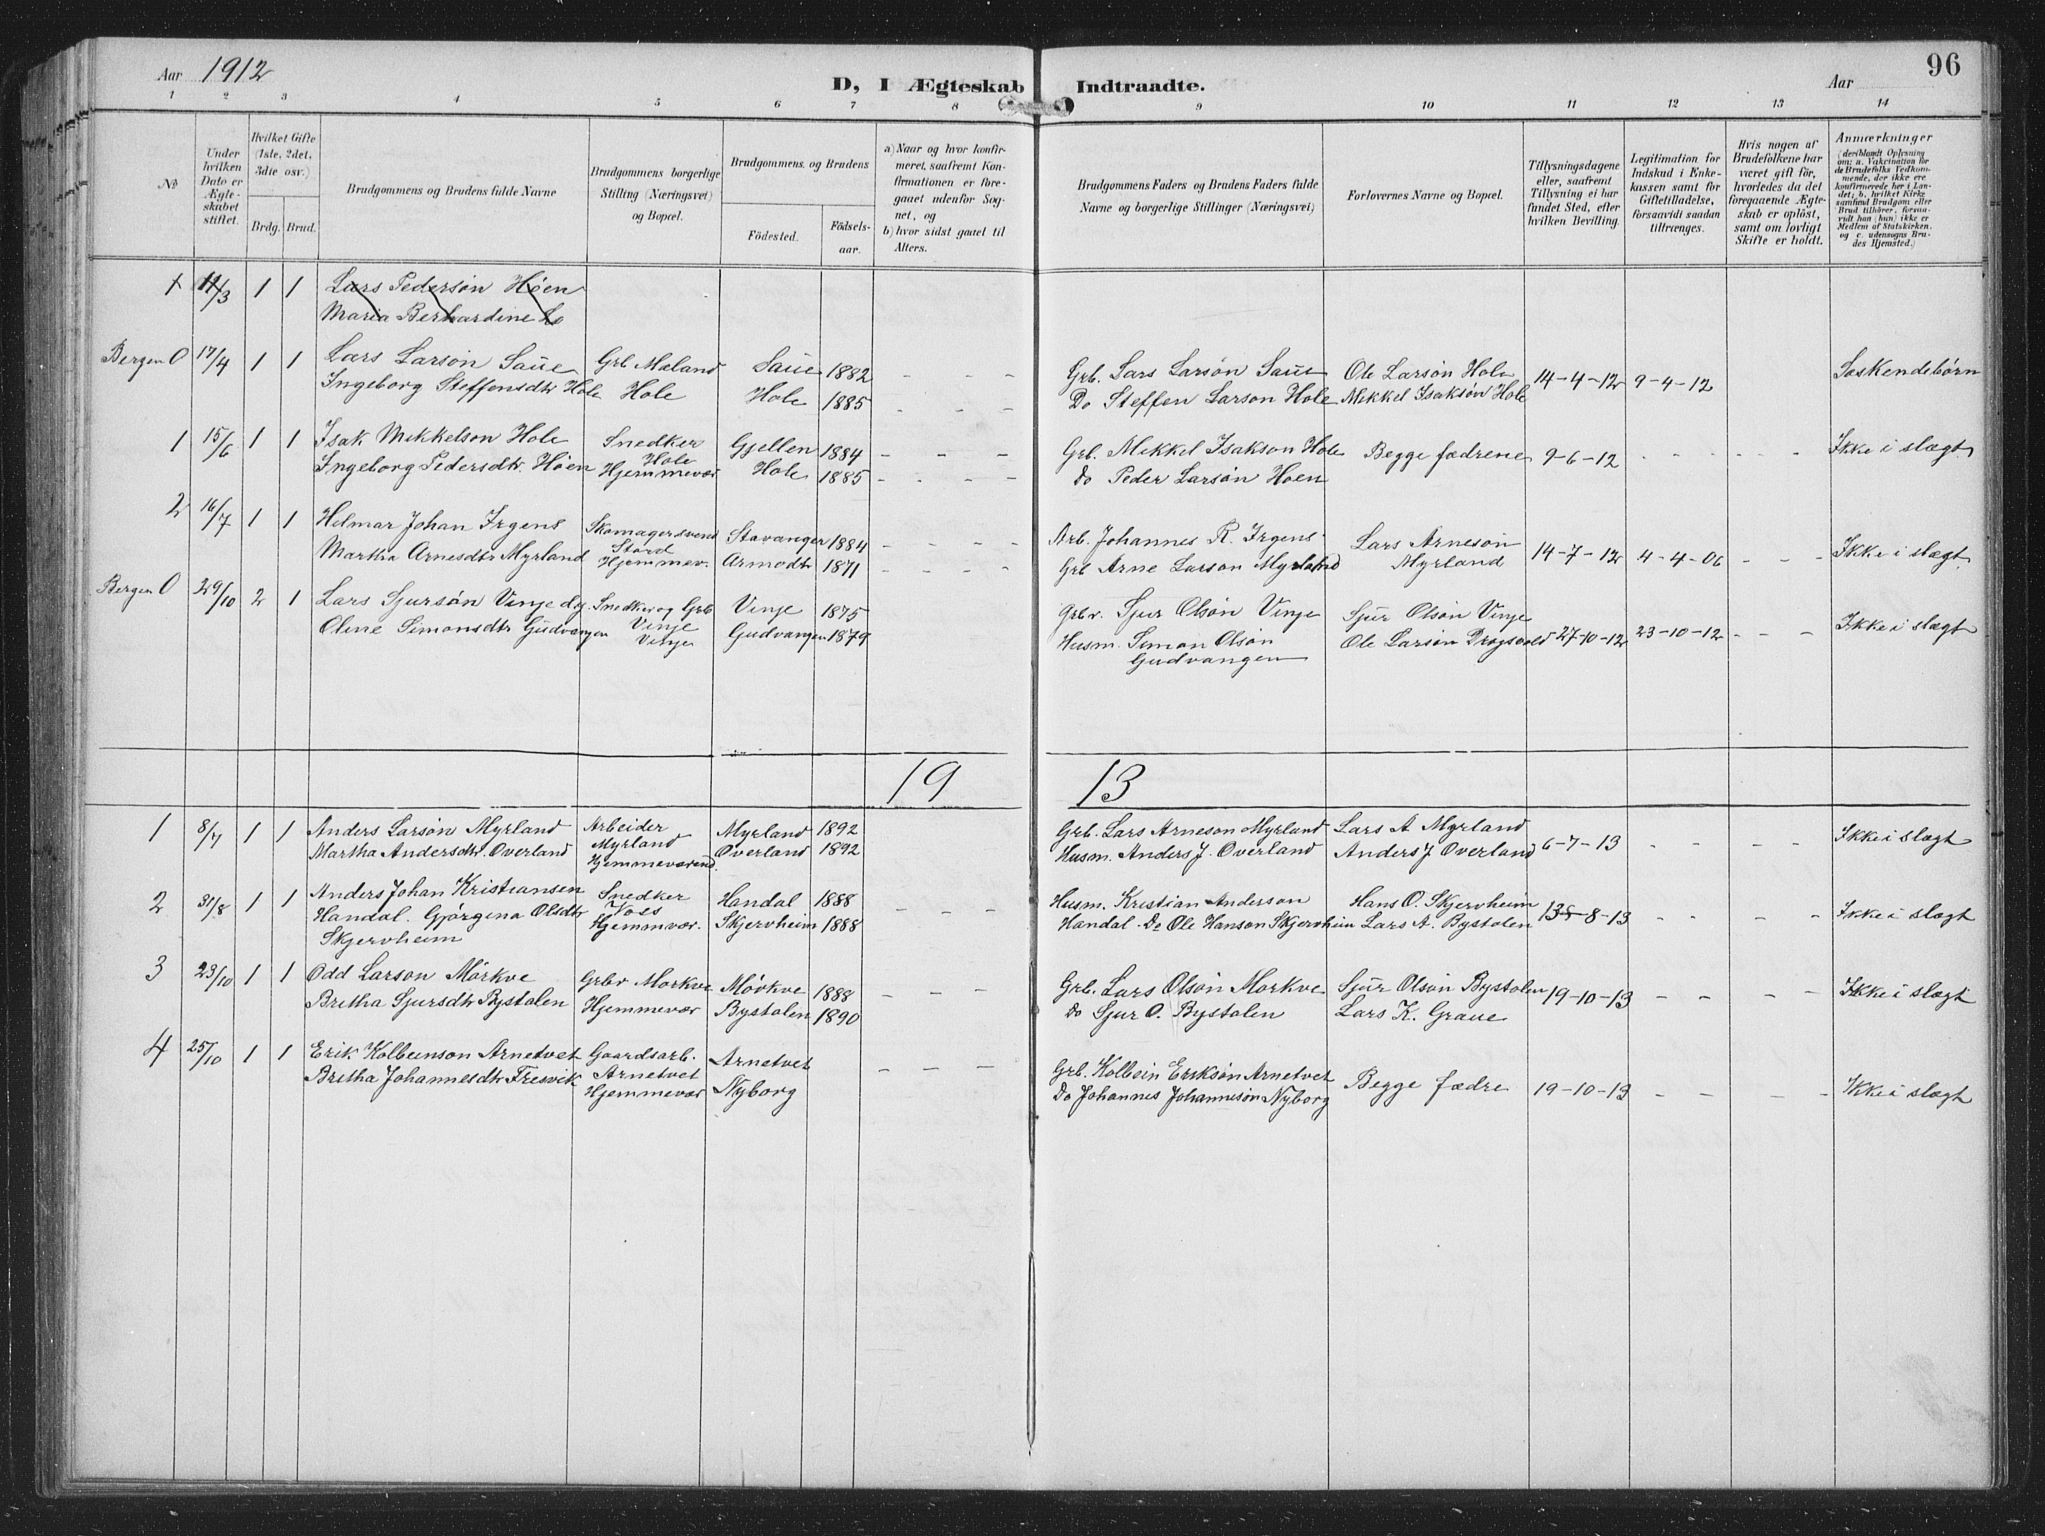 Aar 1912
D, I Ægteskab Indtraadte.
Aar
96
1 2 3 4 5 6 7 8 9 10 11 12 13 14
No
Under hvilken Dato er Ægteskabet stiftet.
Hvilket Gifte (1ste, 2det, 3die osv.)
Brdg. Brud.
Brudgommens og Brudens fulde Navne
Brudgommens borgerlige Stilling (Næringsvei) og Bopæl.
Brudgommens og Brudens
Födested.
Födselsaar.
a) Naar og hvor konfirmeret, saafremt Konfirmationen er foregaaet udenfor Sognet, og
b) hvor sidst gaaet til Alters.
Brudgommens Faders og Brudens Faders fulde Navne og borgerlige Stillinger (Næringsvei)
Forlovernes Navne og Bopæl.
Tillysningsdagene eller, saafremt Tillysning ei har fundet Sted, efter hvilken Bevilling.
Legitimation for Indskud i Enkekassen samt for Giftetilladelse, forsaavidt saadan tiltrænges.
Hvis nogen af Brudefolkene har været gift før, hvorledes da det foregaaende Ægteskab er opløst, samt om lovligt Skifte er holdt.
Anmærkninger
(deriblandt Oplysning om: a. Vakcination for de Brudefolks Vedkommende, der ikke ere konfirmerede her i Landet; b. hvilket Kirkesamfund Brudgom eller Brud tilhører, forsaavidt han (hun) ikke er Medlem af Statskirken. og c. udensogns Brudes Hjemsted.)
1 11/3 1 1 Lars Pedersön Höen
Maria Berhardine Lo
Bergen O 17/4 1 1 Lars Larsön Saue Grb Maland Saue 1882 Grb. Lars Larsön Saue Ole Larsön Hole 14-4-12 9-4-12 Söskendebörn
Ingeborg Steffensdtr Hole Hole Hole 1885 Do Steffen Larson Hole Mikkel Isaksön Hole
1 15/6 1 1 Isak Mikkelson Hole Snedker Hole Gjellen 1884 Grb. Mekkel Isakson Hole Begge fædrene 9-6-12 Ikke i slægt
Ingeborg Pedersdtr. Höen Hjemmevær Hole 1885 Do Peder Larsön Höen
2 16/7 1 1 Helmar Johan Irgens Skomagersvend Stord Stavanger 1884 Arb. Johannes R. Irgens Lars Arneson 14-7-12 4-4-06 Ikke i slægt
Martha Arnesdtr Myrland Hjemmev. Armodt 1871 Grb Arne Larson Myrland Myrland
Bergen O 29/10 2 1 Lars Sjursön Vinje d.y. Snedker og Grb Vinje Vinje 1875 Grbr. Sjur Olsön Vinje Sjur Olson Vinje 27-10-12 23-10-12 Ikke i slægt
Oline Simonsdtr Gudvangen Vinje Gudvangen 1879 Husm. Simon Olsön Ole Larsön Drogsvold
Gudvangen
19 13
1 8/7 1 1 Anders Larsön Myrland Arbeider Myrland Myrland 1892 Grb. Lars Arneson Myrland Lars A Myrland 6-7-13 Ikke i slægt
Martha Andersdtr. Overland Hjemmeværend. Overland 1892 Husm. Anders J. Overland Anders J Overland
2 31/8 1 1 Anders Johan Kristiansen Snedker Voss Handal 1888 Husm. Kristian Anderson Hans O. Skjervheim 8-13 Ikke i slægt
Handal. Gjörgina Olsdtr Hjemmvær. Skjervheim 1888 Handal. Do Ole Hanson Skjervheim Lars A. Bystolen
Skjervheim
3 23/10 1 1 Odd Larson Mörkve Grbr Morkve Mörkve 1888 Grb. Lars Olsön Morkve Sjur Olson Bystolen 19-10-13 Ikke i slægt
Britha Sjursdtr Bystolen Hjemmevær Bystolen 1890 Do Sjur O. Bystolen Lars K. Graue
4 25/10 1 1 Erik Kolbeinson Arnetvet Gaardsarb. Arnetvet Arnetvet Grb. Kolbein Eriksön Arnetvet Begge fædre 19-10-13 Ikke i slægt
Britha Johannesdtr Fresvik Hjemmevær Nyborg Do Johannes Johannesön Nyborg